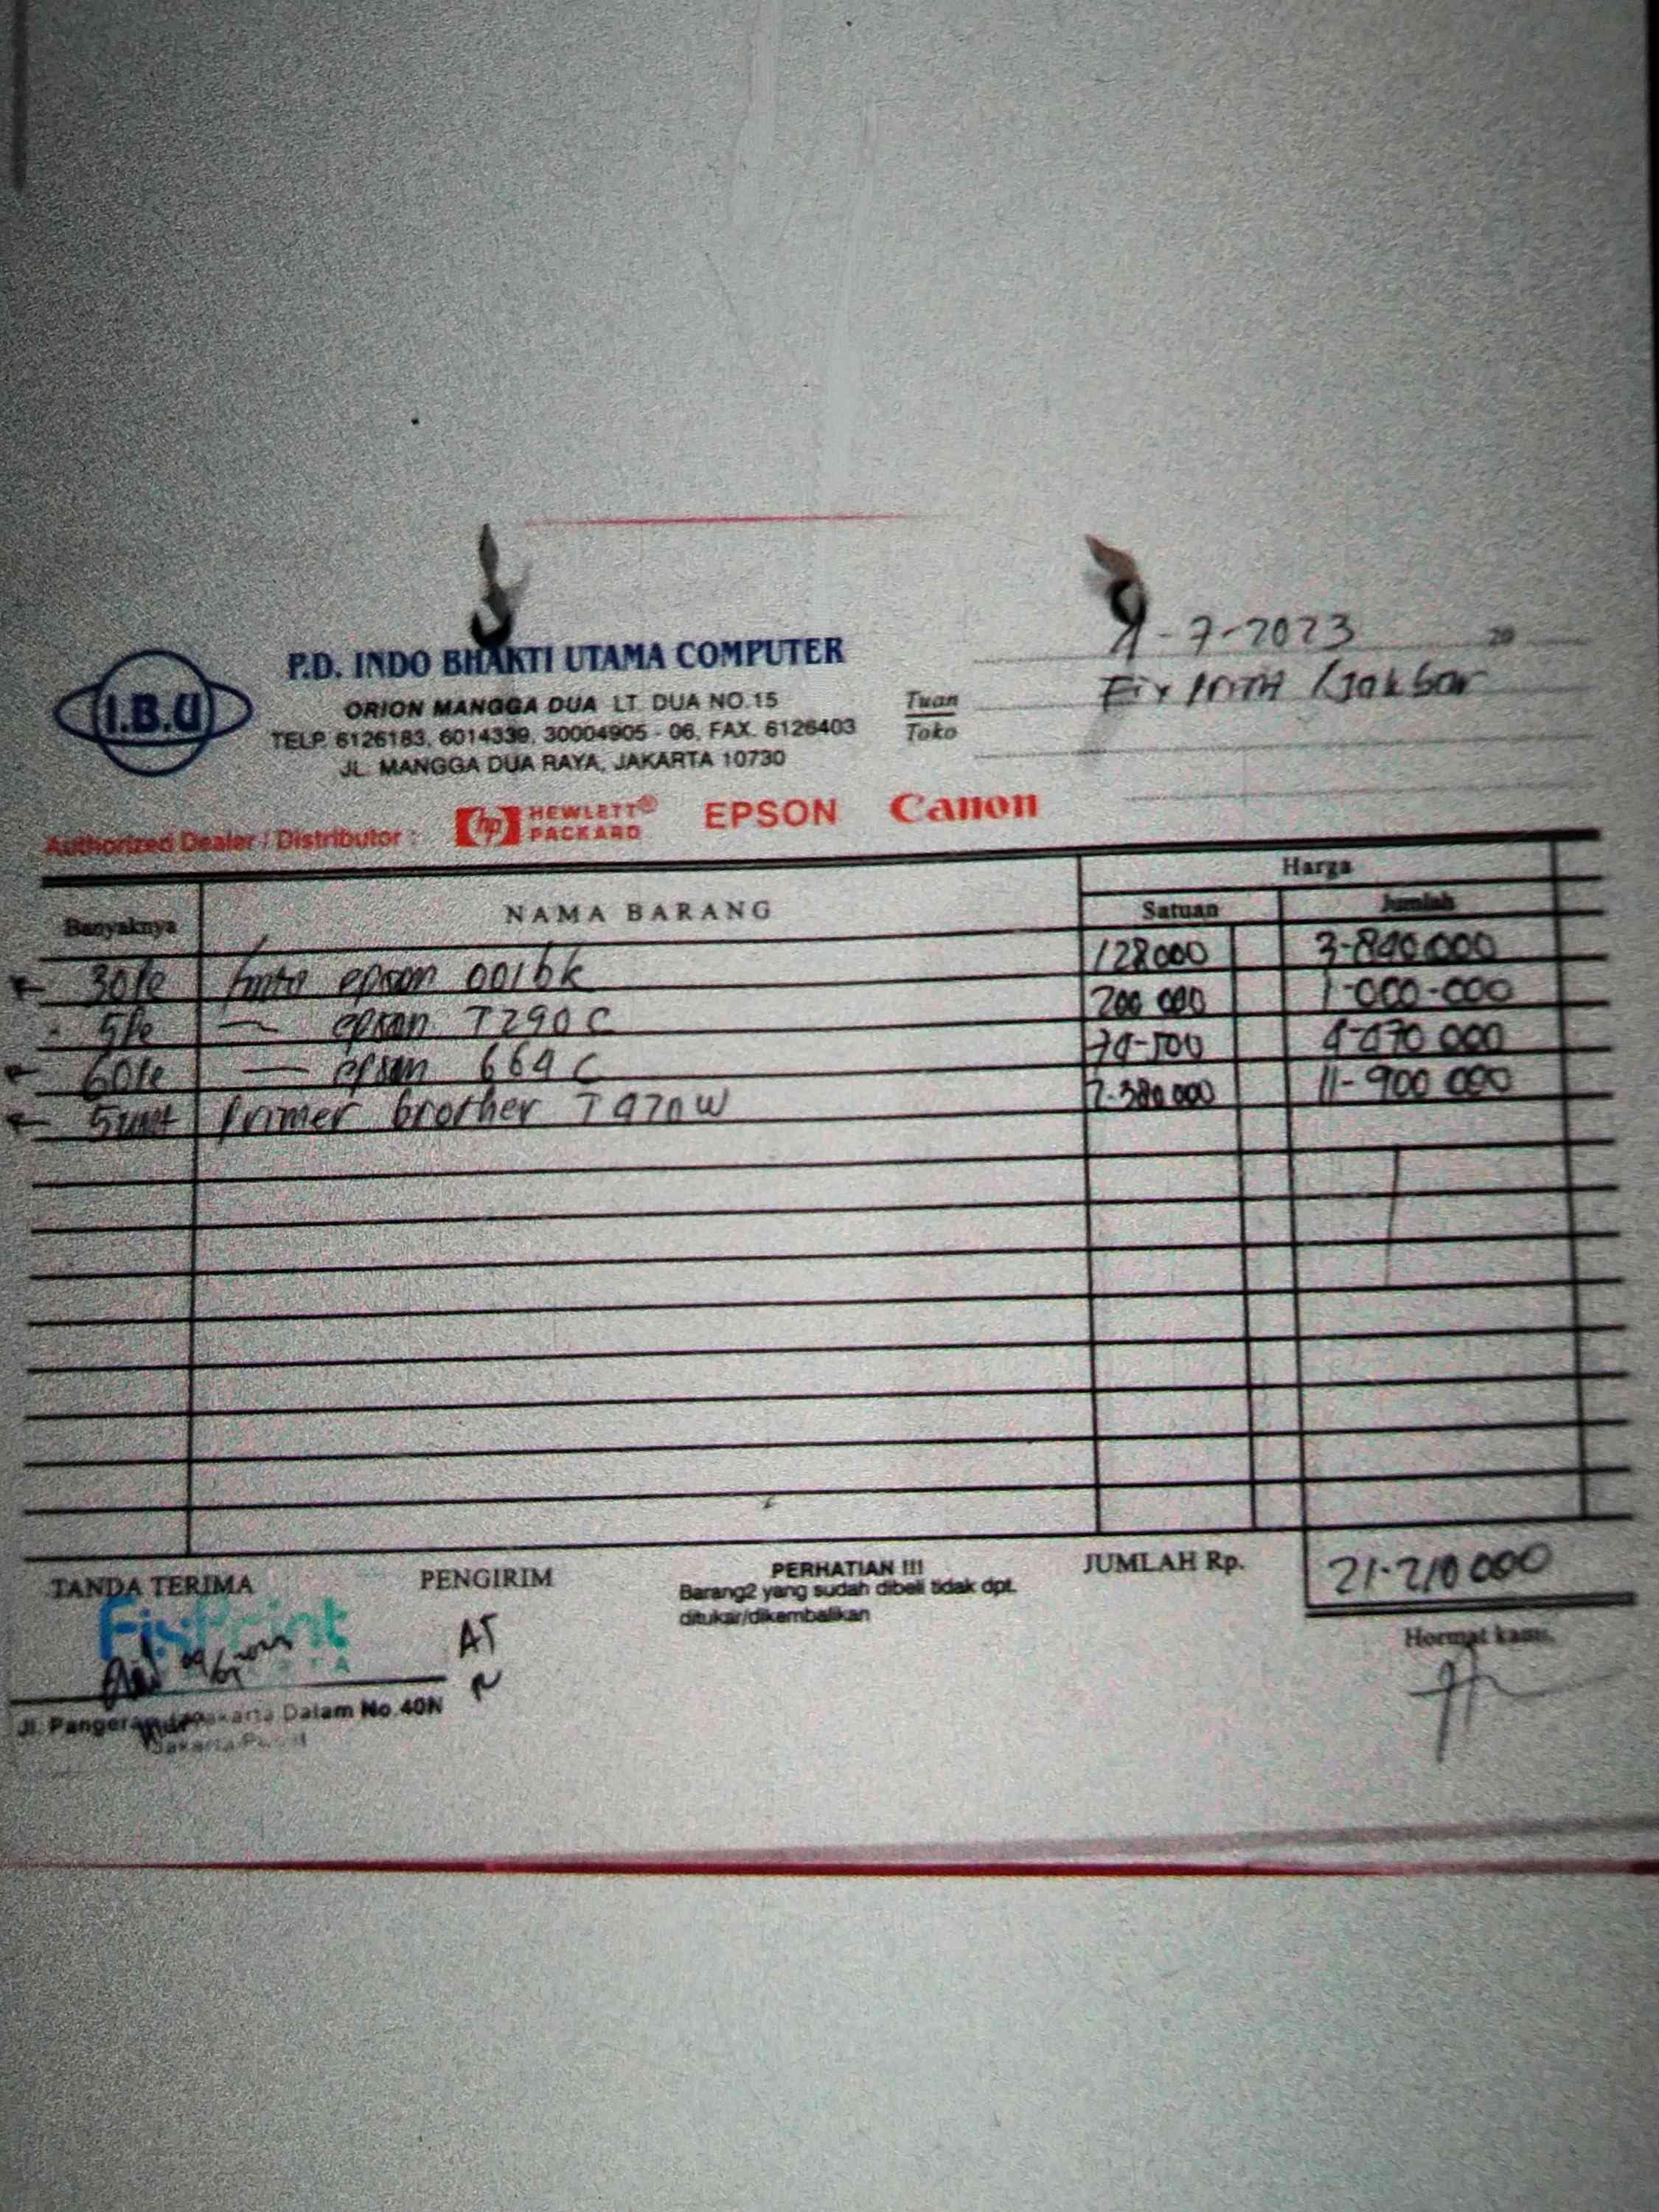 P.D. INDO BHAKTI UTAMA COMPUTER
I.B.U
ORION MANGGA DUA LT. DUA NO.15
TELP. 6126183, 6014339, 30004905 - 06, FAX. 6126403
JL. MANGGA DUA RAYA, JAKARTA 10730
-7-2023 20
Tuan
Toko
/Jakbar
Authorized Dealer / Distributor : hp HEWLETT® PACKARD EPSON Canon
Banyaknya NAMA BARANG Harga
Satuan Jumlah
30 epson 001bk 128000 3-840.000
5 — epson T290C 200 000 1-000-000
60 — epson 664 C 74-500 4-470 000
5 unit brother T 2-380 000 11-900 000
TANDA TERIMA PENGIRIM PERHATIAN !!! JUMLAH Rp. 21-210 000
Barang2 yang sudah dibeli tidak dpt.
ditukar/dikembalikan
FixPrint
Hormat kami,
Jl. Pangeran Jayakarta Dalam No.40N
Jakarta Pusat